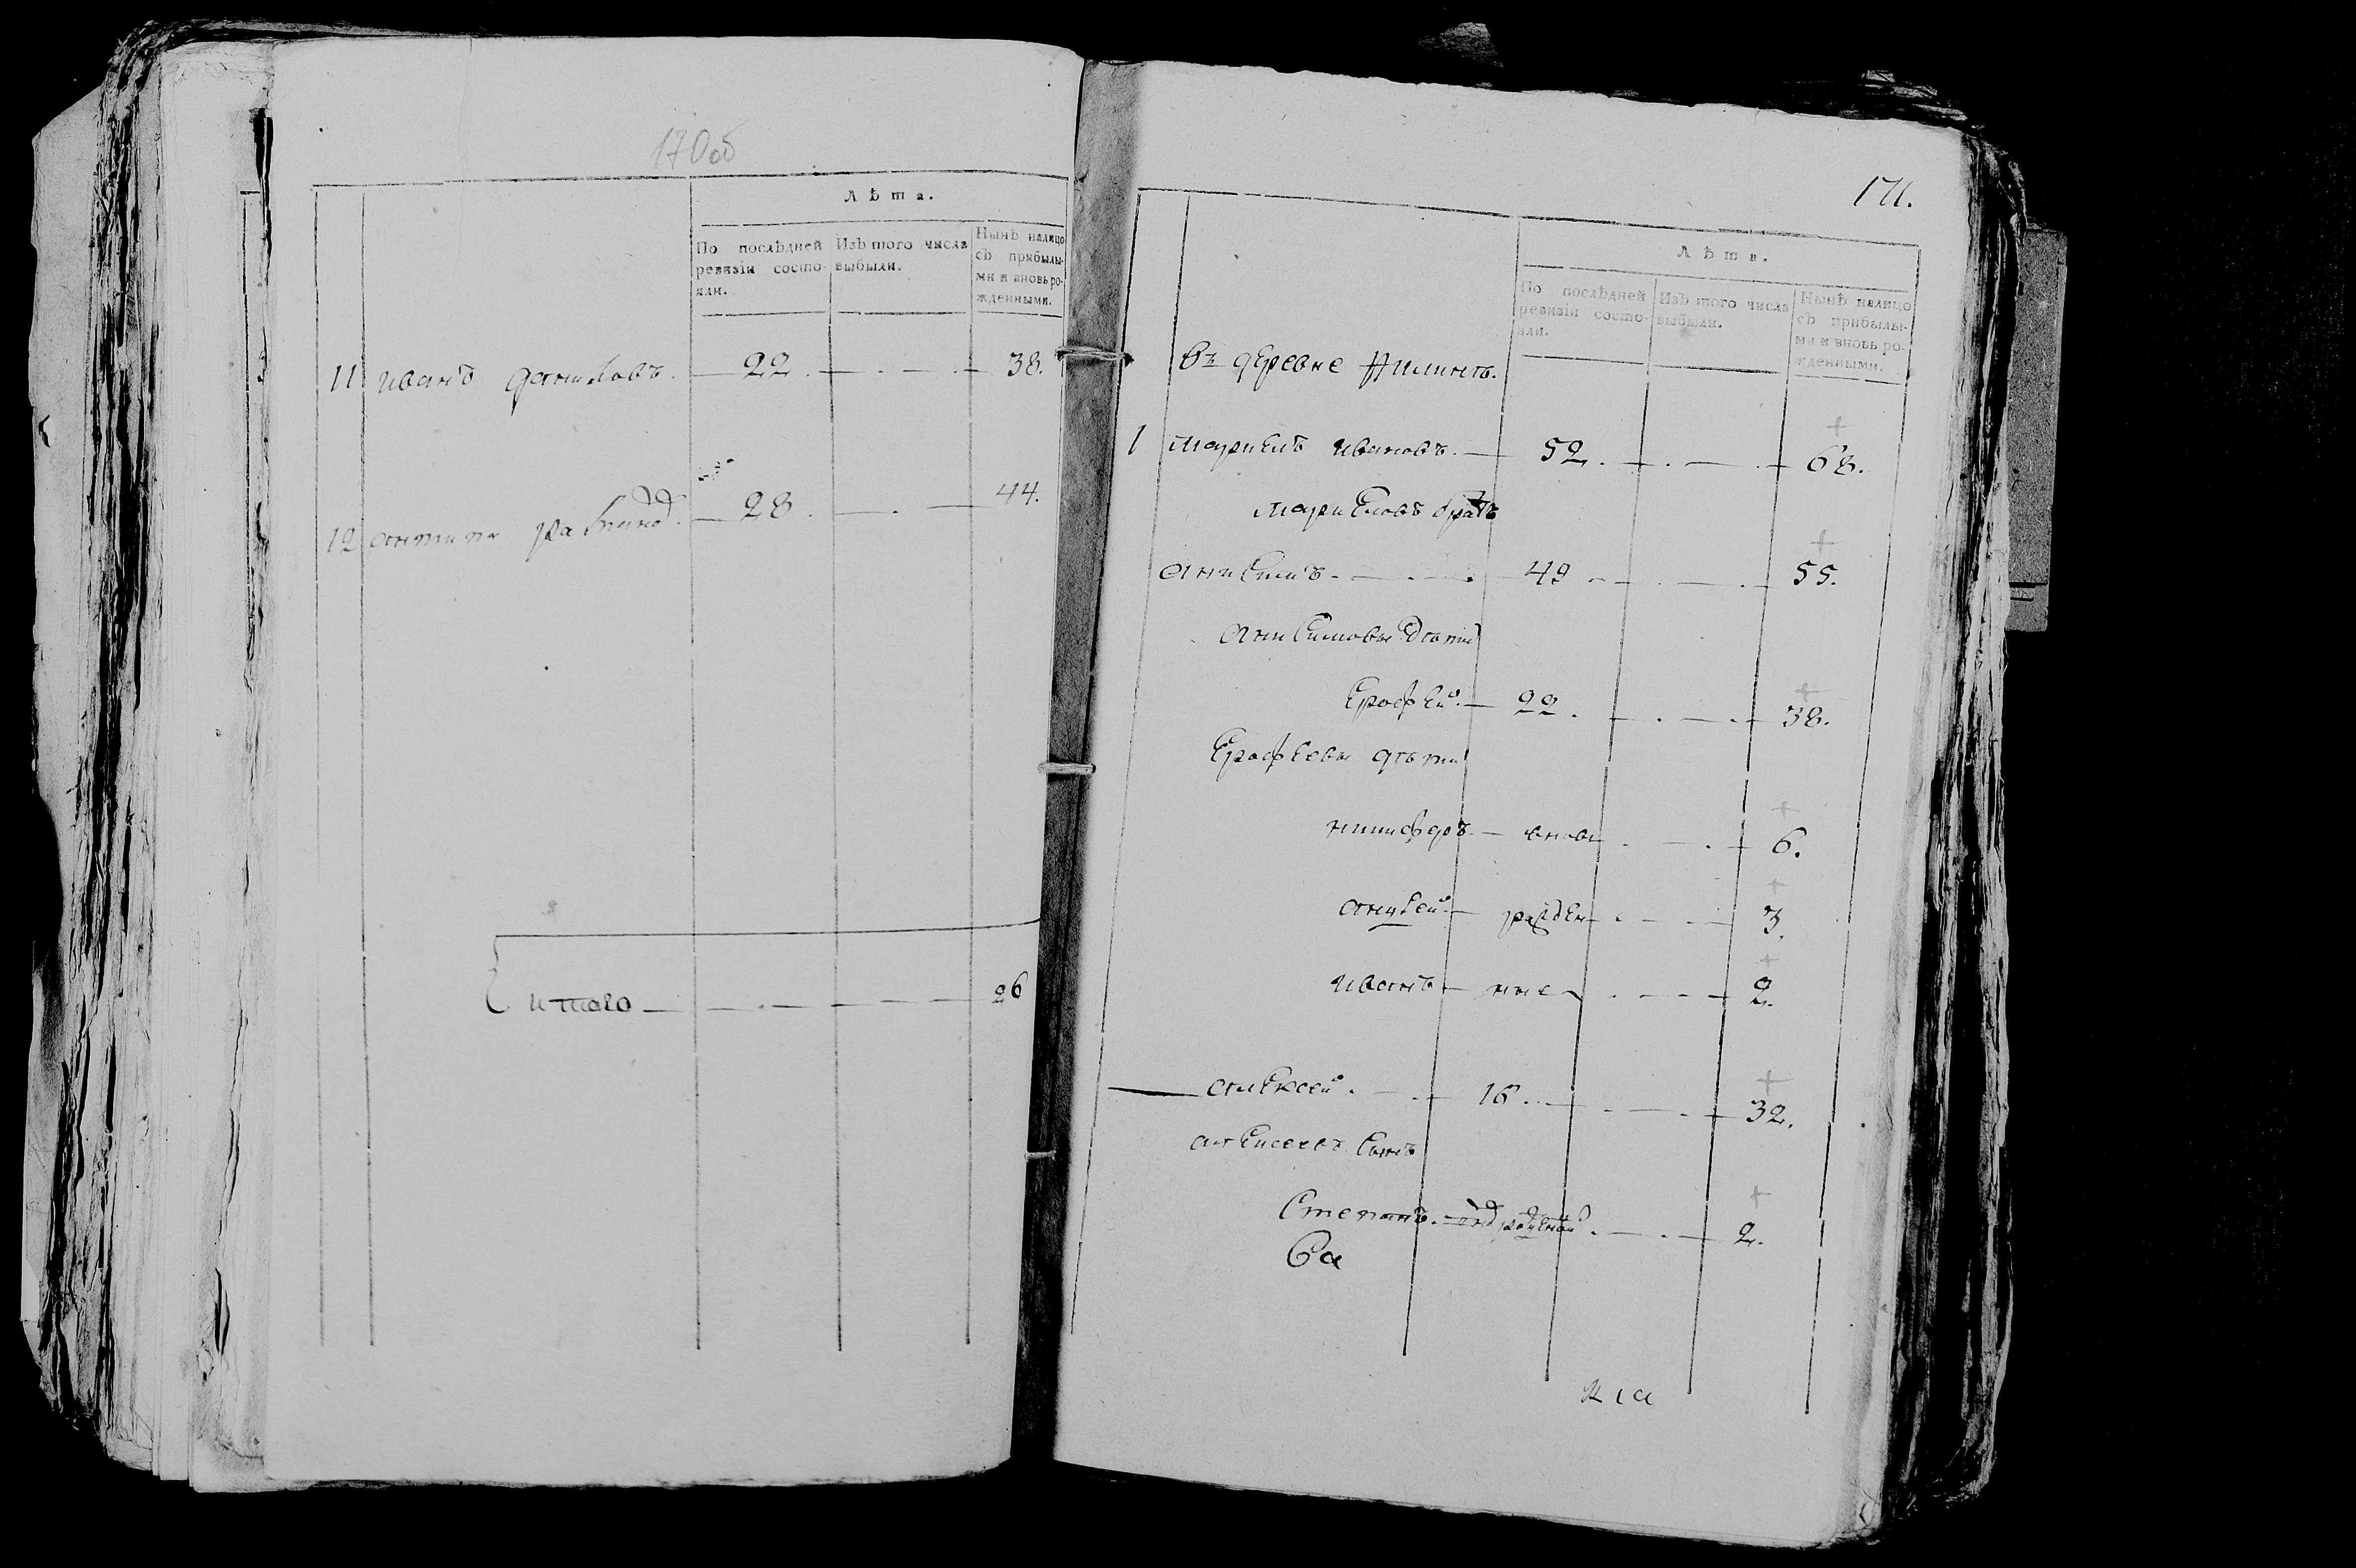 170об
Лѣта.
По послѣдней ревизіи состояли.
Изъ того числа выбыли.
Нынѣ налицо съ прибылыми и вновь рожденными.
11 иванъ даниловъ. 22. 38.
12 антипа 28. 44.
итого 26
171.
Лѣта.
По послѣдней ревизіи состояли.
Изъ того числа выбыли.
Нынѣ налицо съ прибылыми и вновь рожденными.
въ деревне
1 ивановъ. 52. 68.
братъ
анисимъ. 49 55.
анисимовы дѣти
Ерофей. 22. 38.
Ерофеевы дѣти
никифоръ вновь 6.
рожден 3.
иванъ ные 2.
алексей. 16. 32.
алексеевъ сынъ
Степанъ. 2.